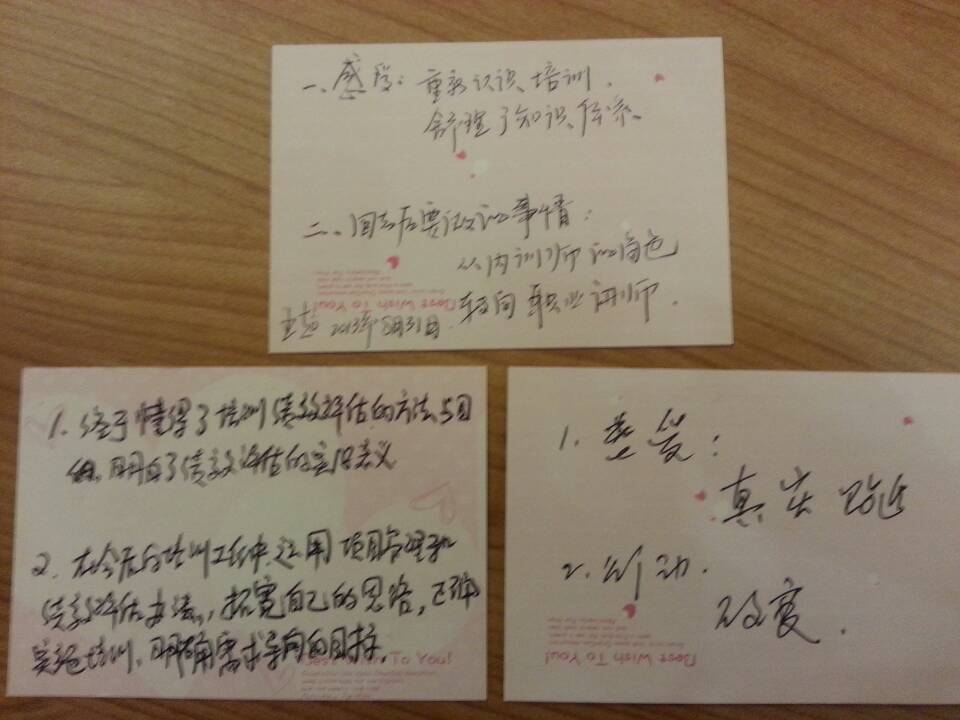 一、感受：重新认识培训、
舒理了知识体系
二、回去后要改的事情：
从内训师的角色
转向职业讲师.
2013年8月31日.
Best Wish To You!
1. 终于懂得了培训绩效评估的方法与目
的, 明白了绩效评估的实际意义
2. 在今后的培训工作中, 运用项目管理和
绩效评估办法, 拓宽自己的思路, 正确
实施培训、明确需求导向的目标.
Best Wish To You!
1. 感受:
真实
2. 行动.
改变.
Best Wish To You!